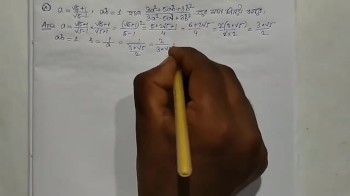 a = √5+1/√5-1, ab = 1 হলে 3a²+5ab+3b²/3a²-5ab+3b² এর মান নির্ণয় করো।
Ans a = √5+1/√5-1 = √5+1/√5-1 × √5+1/√5+1 = (√5+1)²/5-1 = 5+2√5+1/4 = 6+2√5/4 = 2(3+√5)/2×2 = 3+√5/2
ab = 1 = 1/a = 1/3+√5/2 = 2/3+√5